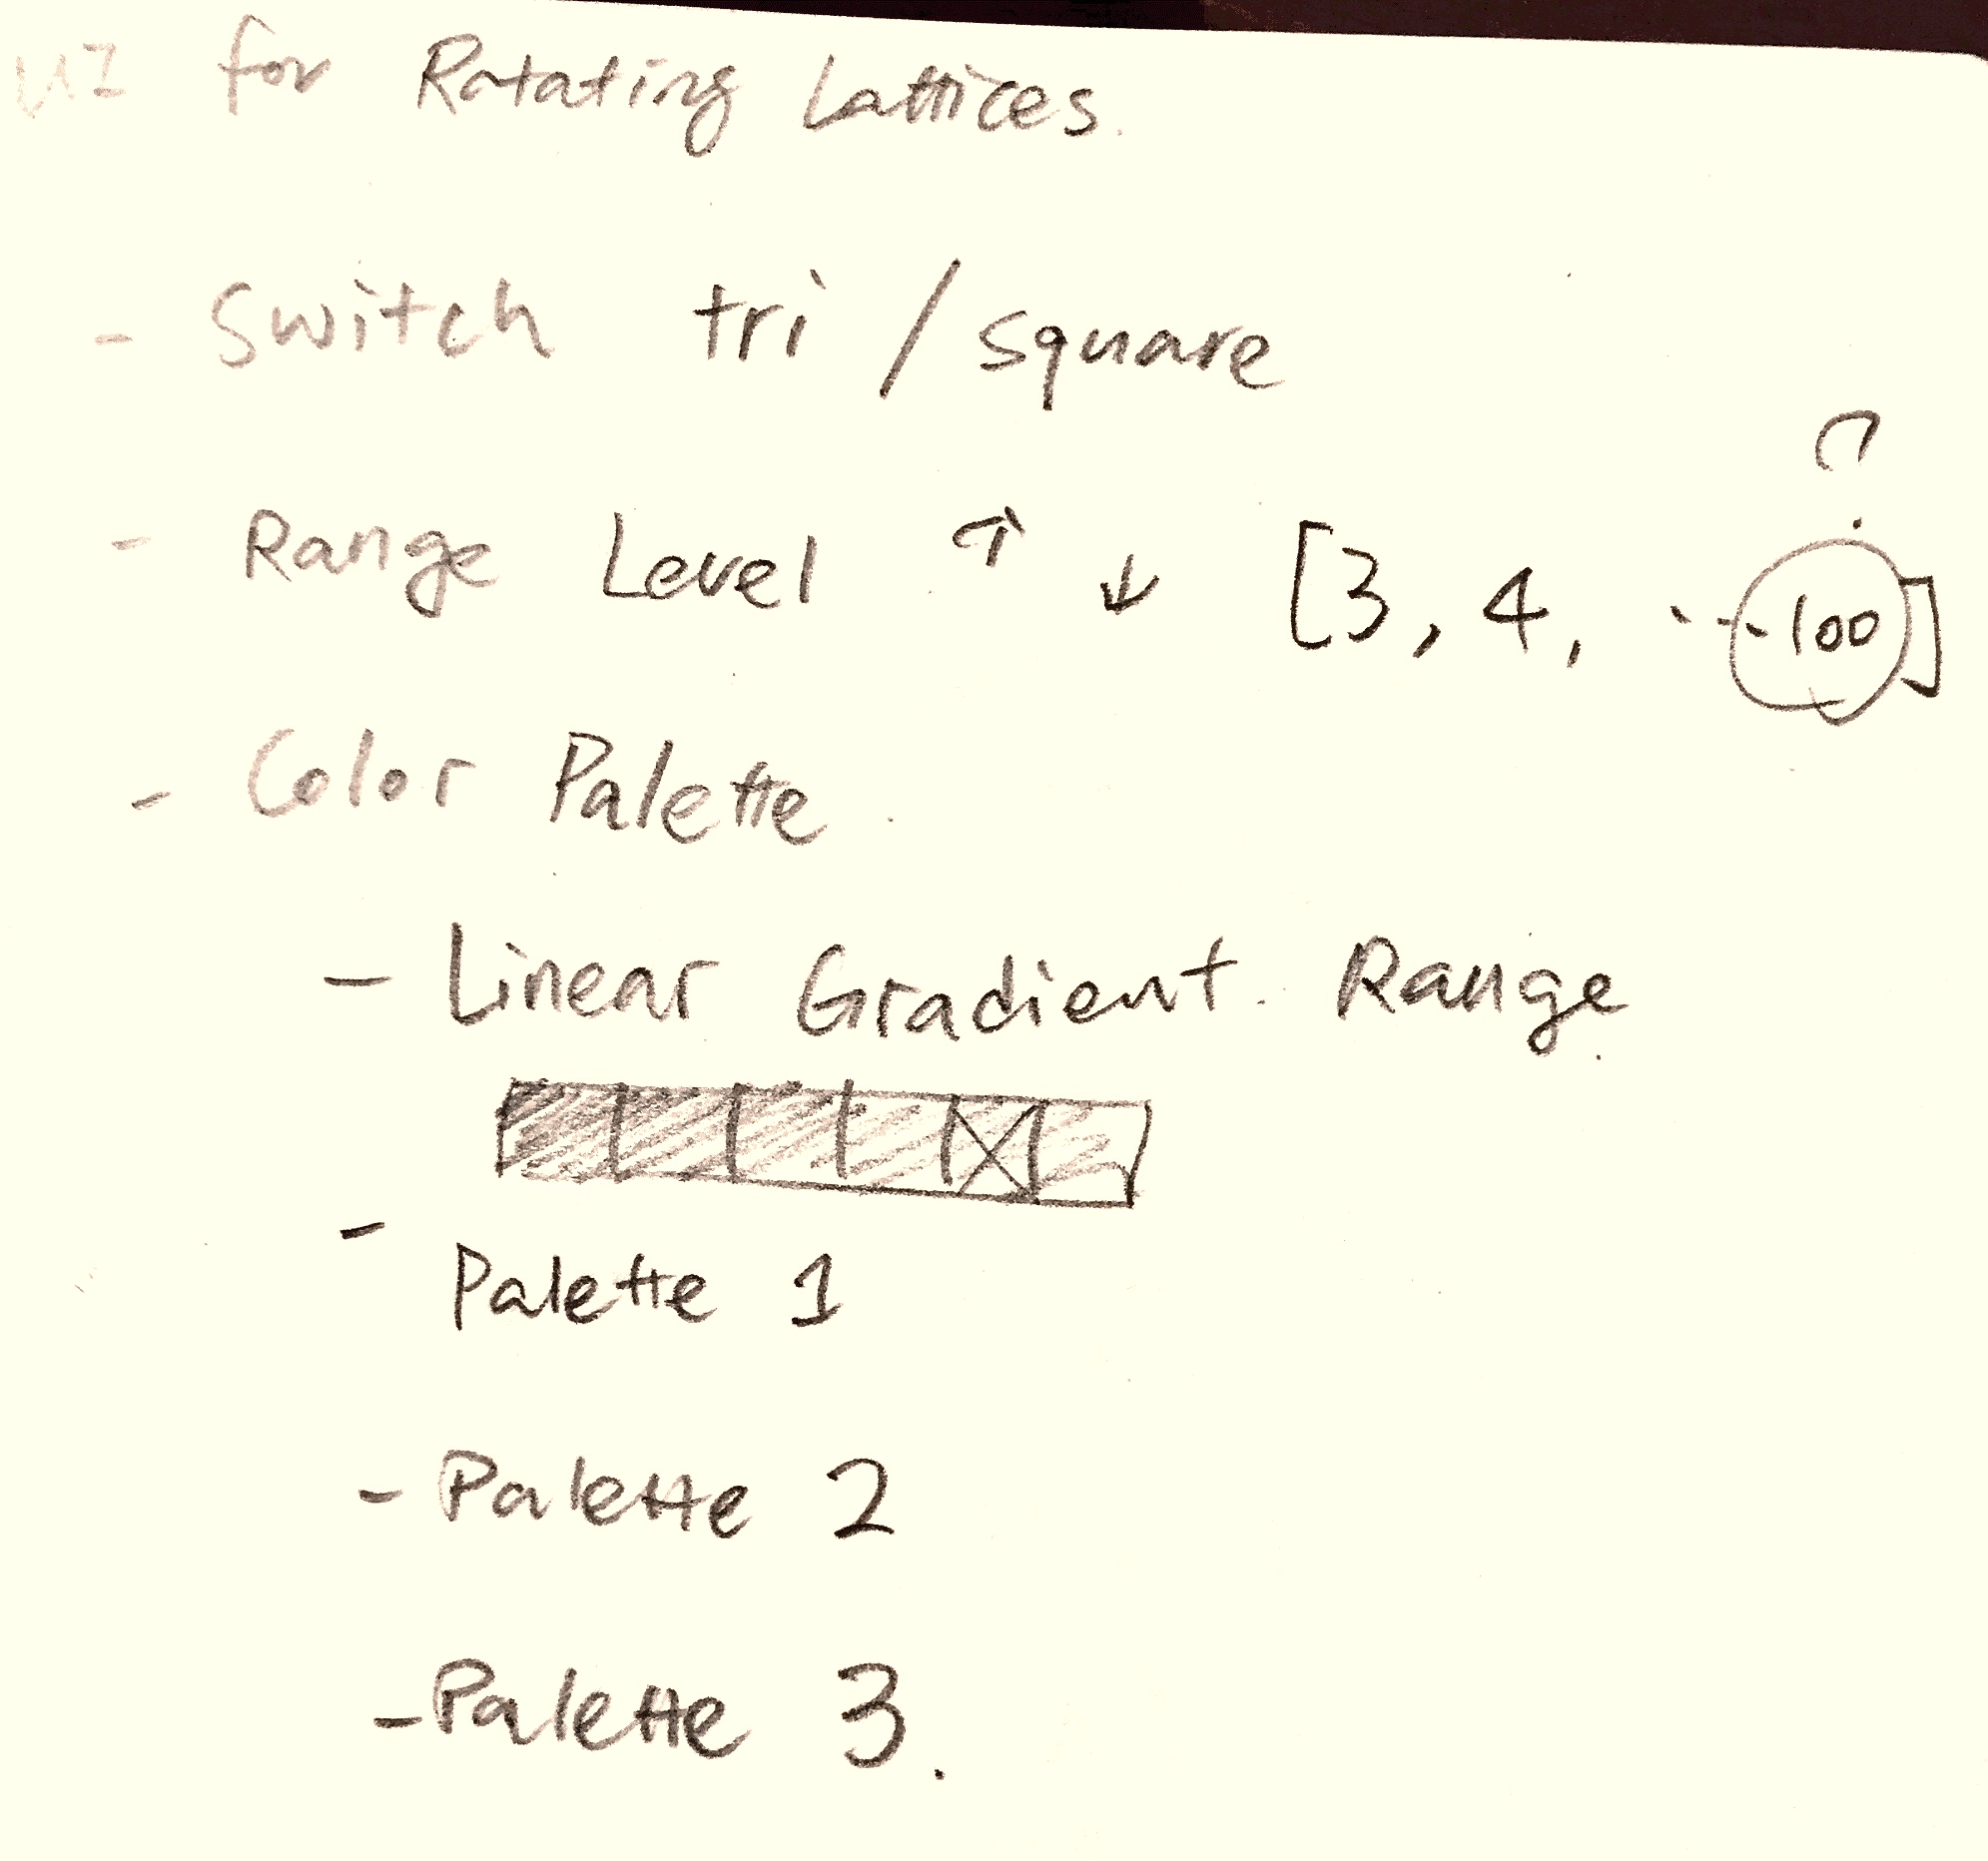 UI for Rotating Lattices.
- Switch tri / square
- Range Level ↑ ↓ [3, 4, ... 100] ?
- Color Palette.
- Linear Gradient Range
- Palette 1
- Palette 2
- Palette 3.